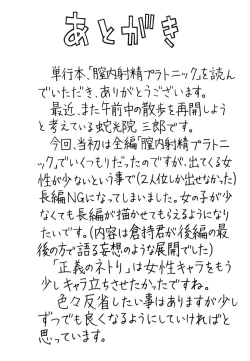 あとがき
単行本、「膣内射精プラトニック」を読ん
でいただき、ありがとうございます。
最近、また午前中の散歩を再開しよう
と考えている蛇光院三郎です。
今回、当初は全編「膣内射精プラトニ
ック」でいくつもりだったのですが、出てくる女
性が少ないという事で(2人位しか出せなかった)
長編NGになってしまいました。女の子が少
なくても長編が描かせてもらえるようになり
たいです。(内容は倉持君が後編の最
後の方で語る妄想のような展開でした)
「正義のネトリ」は女性キャラをもう
少しキャラ立ちさせたかったですね。
色々反省したい事はありますが少し
ずつでも良くなるようにしていければと
思っています。